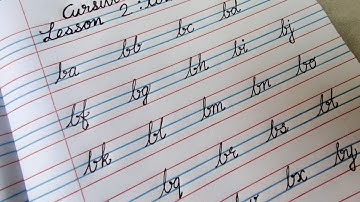 Cursive
Lesson 2:
ba bb bc bd
bf bg bh bi bj
bk bl bm bn bo
bq br bs bt
bx by